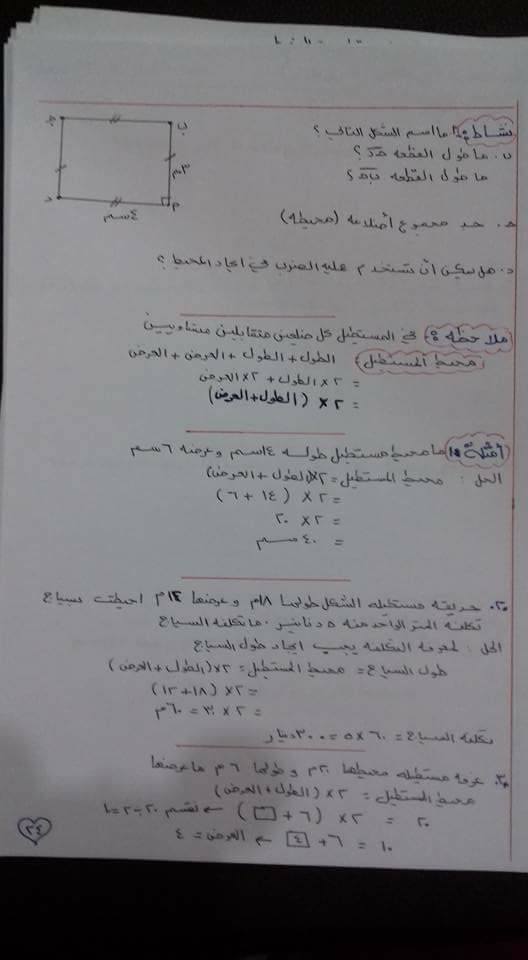 نشاط: ١. ما اسم الشكل التالي ؟
ب. ما طول القطعة جـ د ؟
ما طول القطعة ب جـ ؟
جـ ب
٣م
د ٤سم م
جـ. جد مجموع أضلاعه (محيطه)
د. هل يمكن أن تستخدم عملية الضرب في ايجاد المحيط ؟
ملاحظة : في المستطيل كل ضلعين متقابلين متساويين
محيط المستطيل الطول + الطول + العرض + العرض
= ٢ × الطول + ٢ × العرض
= ٢ × (الطول + العرض)
أمثلة ١: ما محيط مستطيل طوله ١٤سم وعرضه ٦ سم
الحل : محيط المستطيل = ٢ × (الطول + العرض)
= ٢ × (١٤ + ٦)
= ٢ × ٢٠
= ٤٠ سم
٢. حديقة مستطيلة الشكل طولها ١٨م وعرضها ١٢م احيطت بسياج
تكلفة المتر الواحد منه ٥ دنانير. ما تكلفة السياج
الحل : لمعرفة التكلفة يجب ايجاد طول السياج
طول السياج = محيط المستطيل = ٢ × (الطول + العرض)
= ٢ × (١٨ + ١٢)
= ٢ × ٣٠ = ٦٠م
تكلفة السياج = ٦٠ × ٥ = ٣٠٠ دينار
٣. غرفة مستطيلة محيطها ٢٠م وطولها ٦م ما عرضها
محيط المستطيل = ٢ × (الطول + العرض)
٢٠ = ٢ × (٦ + □) ← نقسم ٢٠ ÷ ٢ = ١٠
١٠ = ٦ + ٤ ← العرض = ٤
٢٤